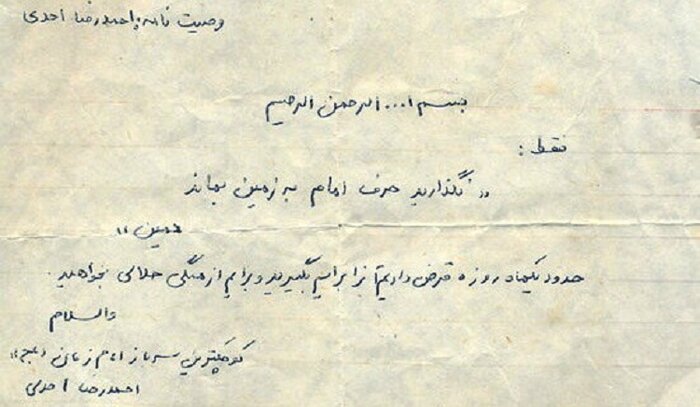 وصیت نامه احمدرضا احدی
بسم ا... الرحمن الرحیم
فقط:
"نگذارید حرف امام به زمین بماند
همین"
حدود یکماه روزه قرض دارم آنرا برایم بگیرید و برایم از همگی حلالی بخواهید.
والسلام
کوچکترین سرباز امام زمان (عج)
احمدرضا احدی